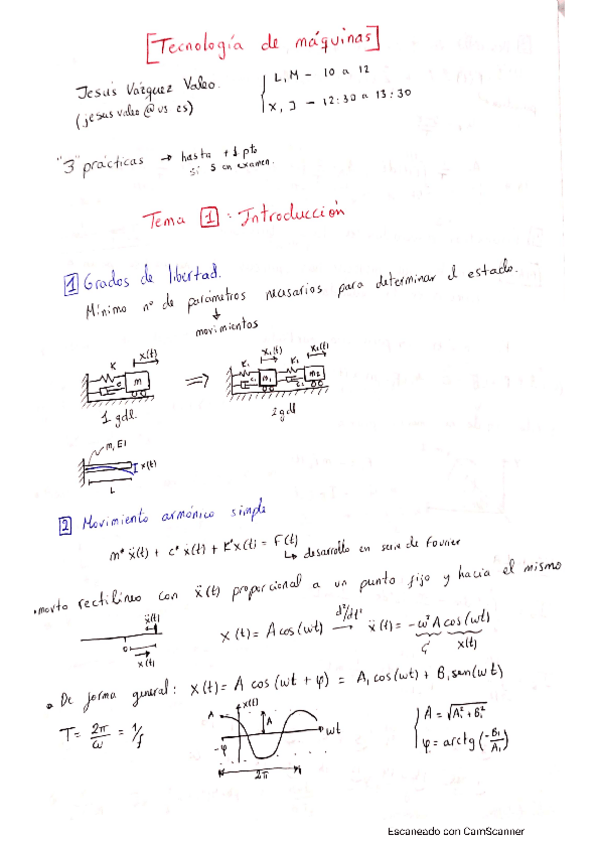 [Tecnología de máquinas]
Jesús Vázquez Valeo.
(jesusvaleo@us es)
L, M - 10 a 12
X, J - 12:30 a 13:30
"3" prácticas → hasta +1 pto
si 5 en examen.
Tema 1: Introducción
1 Grados de libertad.
Mínimo nº de parámetros necesarios para determinar el estado.
↓
movimientos
K x(t) c m
1 gdl.
⇒
K₁ x₁(t) c₁ m₁ K₂ x₂(t) c₂ m₂
2 gdl
m, EI
x(t)
L
2 Movimiento armónico simple
m* ẍ(t) + c* ẋ(t) + K* x(t) = F(t)
↳ desarrollo en serie de Fourier
• movto rectilíneo con ẍ(t) proporcional a un punto fijo y hacia el mismo
ẍ(t)
0
x(t)
x(t) = A cos(ωt) d²/dt² → ẍ(t) = -ω² A cos(ωt)
x(t)
• De forma general: x(t) = A cos(ωt + φ) = A₁ cos(ωt) + B₁ sen(ωt)
T = 2π/ω = 1/f
x(t)
A
A
ωt
-φ
2π
A = √A₁² + B₁²
φ = arctg(-B₁/A₁)
Escaneado con CamScanner